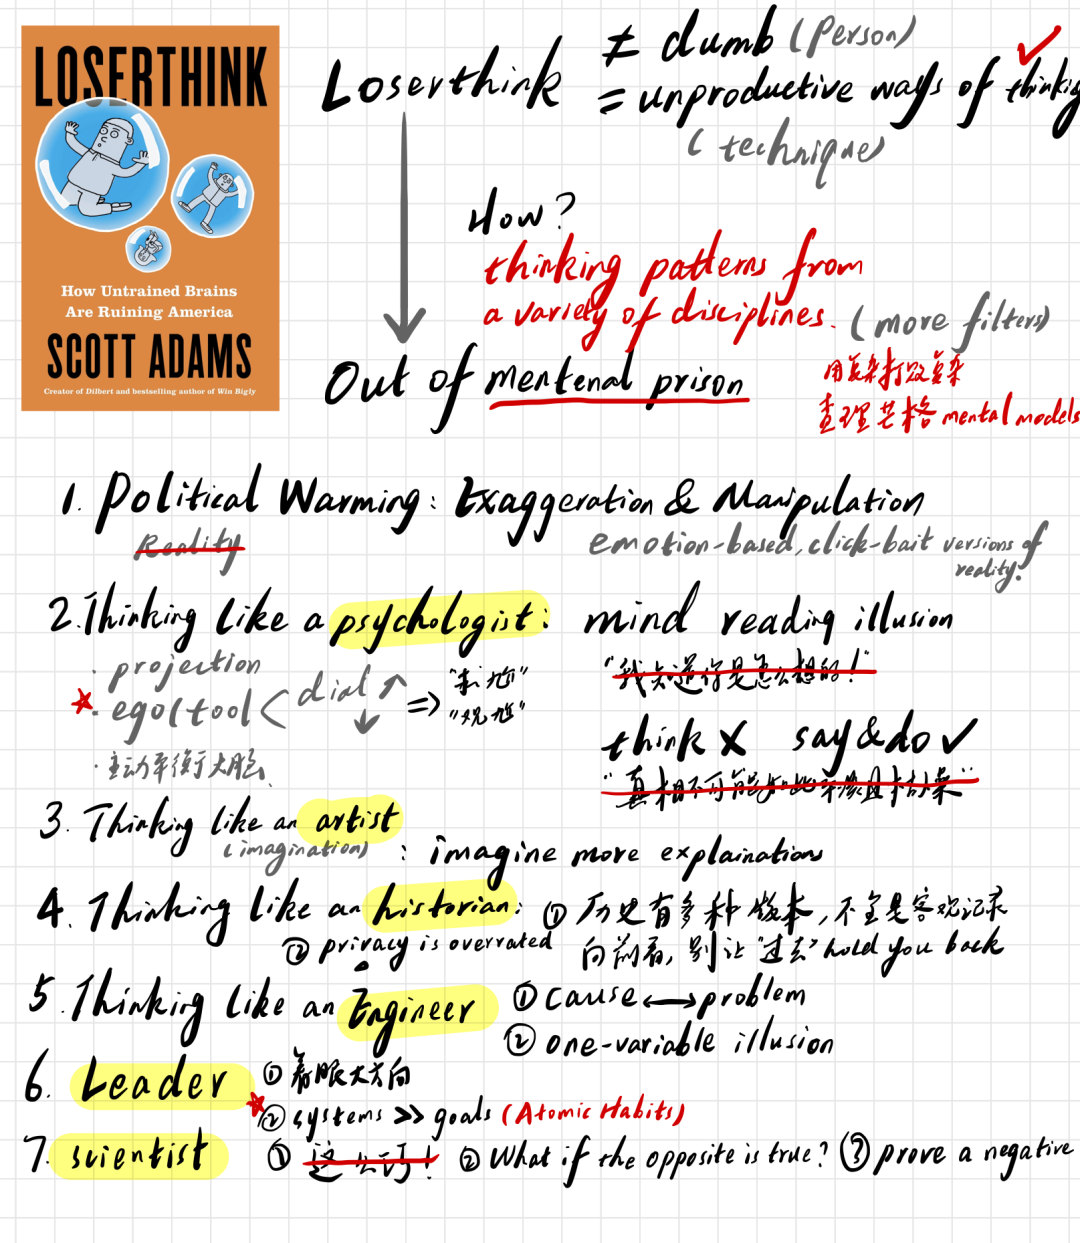 LOSERTHINK
How Untrained Brains
Are Ruining America
SCOTT ADAMS
Creator of Dilbert and bestselling author of Win Bigly
Loserthink ≠ dumb (Person)
= unproductive ways of thinking
(technique)
How?
thinking patterns from
a variety of disciplines. (more filters)
Out of mentenal prison
用复杂打败复杂
查理芒格 mental models
1. Political Warming: Exaggeration & Manipulation
Reality
emotion-based, click-bait versions of
reality.
2. Thinking like a psychologist: mind reading illusion
· projection
"我知道你是怎么想的!"
· ego (tool < dial ↗ ↓ => "表尬"
"观尬"
think X say & do ✓
· 主动平衡大脑
"真相不可能如此
3. Thinking like an artist
(imagination) : imagine more explainations
4. Thinking like an historian: ① 历史有多种版本, 不全是客观记录
② privacy is overrated 向前看, 别让"过去" hold you back
5. Thinking like an Engineer ① cause ↔ problem
② one-variable illusion
6. Leader ① 着眼大方向
② systems >> goals (Atomic Habits)
7. scientist ① 这么巧! ② What if the opposite is true? ③ prove a negative